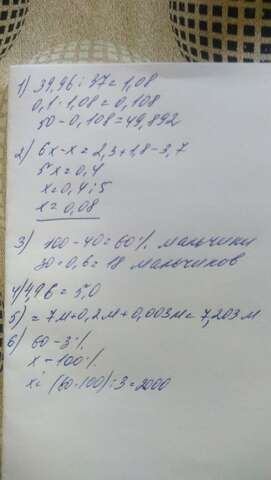 1) 39,96 : 37 = 1,08
0,1 · 1,08 = 0,108
50 - 0,108 = 49,892
2) 6x - x = 2,3 + 1,8 - 3,7
5x = 0,4
x = 0,4 : 5
x = 0,08
3) 100 - 40 = 60% мальчики
30 · 0,6 = 18 мальчиков
4) 4,96 = 5,0
5) = 7м + 0,2м + 0,003м = 7,203м
6) 60 - 3%
x - 100%
x = (60·100) : 3 = 2000